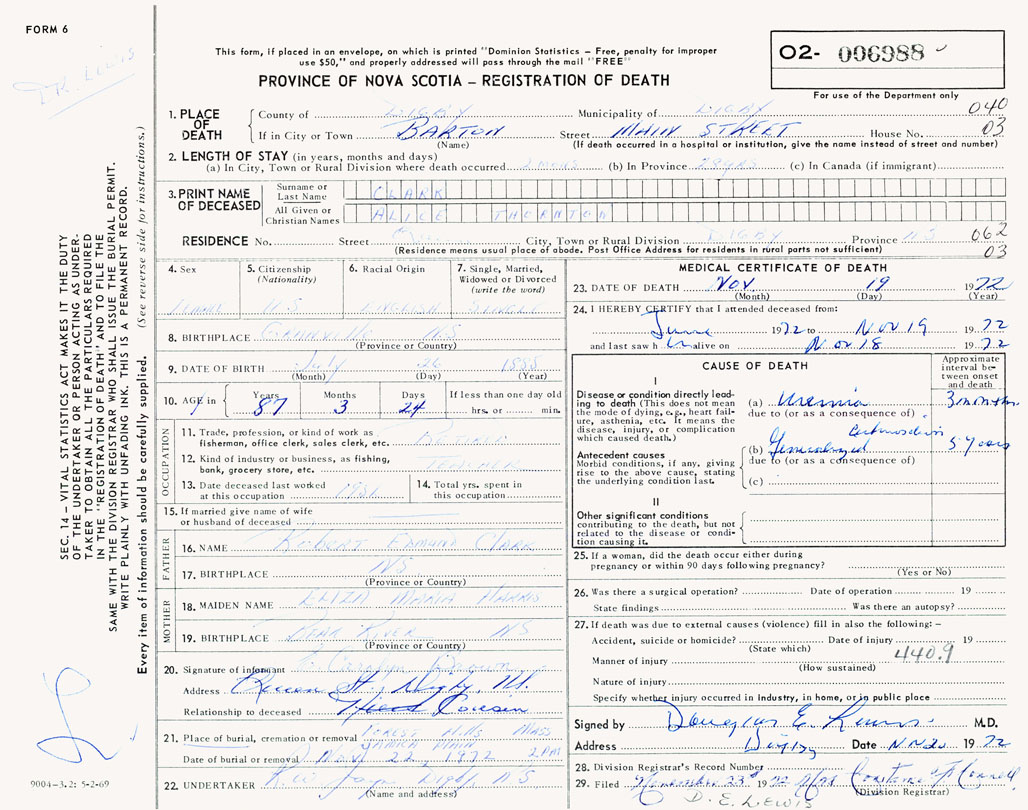 FORM 6
DR. LEWIS
This form, if placed in an envelope, on which is printed "Dominion Statistics – Free, penalty for improper
use $50," and properly addressed will pass through the mail "FREE"
PROVINCE OF NOVA SCOTIA – REGISTRATION OF DEATH
O2- 006988
For use of the Department only
040
03
1. PLACE OF DEATH
County of DIGBY Municipality of DIGBY
If in City or Town BARTON Street MAIN STREET House No.
(Name) (If death occurred in a hospital or institution, give the name instead of street and number)
2. LENGTH OF STAY (in years, months and days)
(a) In City, Town or Rural Division where death occurred 2 (b) In Province (c) In Canada (if immigrant)
3. PRINT NAME OF DECEASED
Surname or Last Name CLARK
All Given or Christian Names ALICE THORNTON
RESIDENCE No. Street City, Town or Rural Division DIGBY Province NS
062
03
(Residence means usual place of abode. Post Office Address for residents in rural parts not sufficient)
4. Sex
5. Citizenship (Nationality)
6. Racial Origin ENGLISH
7. Single, Married, Widowed or Divorced (write the word) SINGLE
8. BIRTHPLACE NS
(Province or Country)
9. DATE OF BIRTH July 26 1885
(Month) (Day) (Year)
10. AGE in Years 87 Months 3 Days 24 If less than one day old hrs. or min.
OCCUPATION
11. Trade, profession, or kind of work as fisherman, office clerk, sales clerk, etc. RETIRED
12. Kind of industry or business, as fishing, bank, grocery store, etc. TEACHER
13. Date deceased last worked at this occupation 1931
14. Total yrs. spent in this occupation
15. If married give name of wife or husband of deceased
FATHER
16. NAME ROBERT EDMUND CLARK
17. BIRTHPLACE NS
(Province or Country)
MOTHER
18. MAIDEN NAME ELIZA MARIA HARRIS
19. BIRTHPLACE BEAR RIVER NS
(Province or Country)
20. Signature of informant Brown
Address Queen St., Digby, N.S.
Relationship to deceased Cousin
21. Place of burial, cremation or removal FOREST HILLS MASS
JAMAICA PLAIN
Date of burial or removal NOV 22, 1972 2 PM
22. UNDERTAKER Digby, N.S
(Name and address)
MEDICAL CERTIFICATE OF DEATH
23. DATE OF DEATH Nov 19 1972
(Month) (Day) (Year)
24. I HEREBY CERTIFY that I attended deceased from:
June 1972 to Nov 19 1972
and last saw h alive on Nov 18 1972
CAUSE OF DEATH
Approximate interval between onset and death
I
Disease or condition directly leading to death (This does not mean the mode of dying, e.g., heart failure, asthenia, etc. It means the disease, injury, or complication which caused death.)
(a) Uremia 3 months
due to (or as a consequence of)
Antecedent causes
Morbid conditions, if any, giving rise to the above cause, stating the underlying condition last.
(b) Generalized Arteriosclerosis 5 years
due to (or as a consequence of)
(c)
II
Other significant conditions
contributing to the death, but not related to the disease or condition causing it.
25. If a woman, did the death occur either during pregnancy or within 90 days following pregnancy?
(Yes or No)
26. Was there a surgical operation? Date of operation 19
State findings Was there an autopsy?
27. If death was due to external causes (violence) fill in also the following: –
Accident, suicide or homicide? Date of injury 19
(State which)
440.9
Manner of injury
(How sustained)
Nature of injury
Specify whether injury occurred in Industry, in home, or in public place
Signed by Douglas E Lewis M.D.
Address Digby Date Nov 20 1972
28. Division Registrar's Record Number
29. Filed November 23rd 1972
(Division Registrar)
D. E. LEWIS
SEC. 14 – VITAL STATISTICS ACT MAKES IT THE DUTY
OF THE UNDERTAKER OR PERSON ACTING AS UNDER-
TAKER TO OBTAIN ALL THE PARTICULARS REQUIRED
IN THE "REGISTRATION OF DEATH" AND TO FILE THE
SAME WITH THE DIVISION REGISTRAR WHO SHALL ISSUE THE BURIAL PERMIT.
WRITE PLAINLY WITH UNFADING INK. THIS IS A PERMANENT RECORD.
Every item of information should be carefully supplied. (See reverse side for instructions.)
9004-3.2: 5-2-69